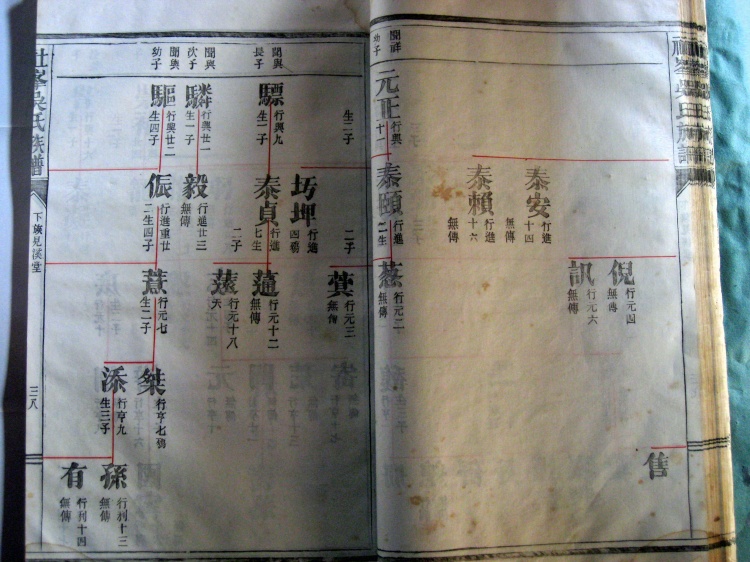 聞祥
幼子
元正
行興
十一
生二子
泰安
行進
十四
無傳
泰賴
行進
十六
無傳
泰頤
行進
二生
二子
倪
行元四
無傳
訊
行元六
無傳
行元二
無傳
行元三
無傳
售
聞與
長子
驃
行興九
聞與
次子
行興廿一
生一子
聞與
幼子
驅
行興廿二
生四子
行進
四殤
泰貞
行進
七生
二子
毅
行進廿三
無傳
侲
行進重廿
二生四子
行元十二
無傳
行元十八
夭
行元七
生二子
桀
行亨七殤
添
行亨九
生三子
孫
行利十三
無傳
有
行利十四
無傳
吳氏族譜
三八